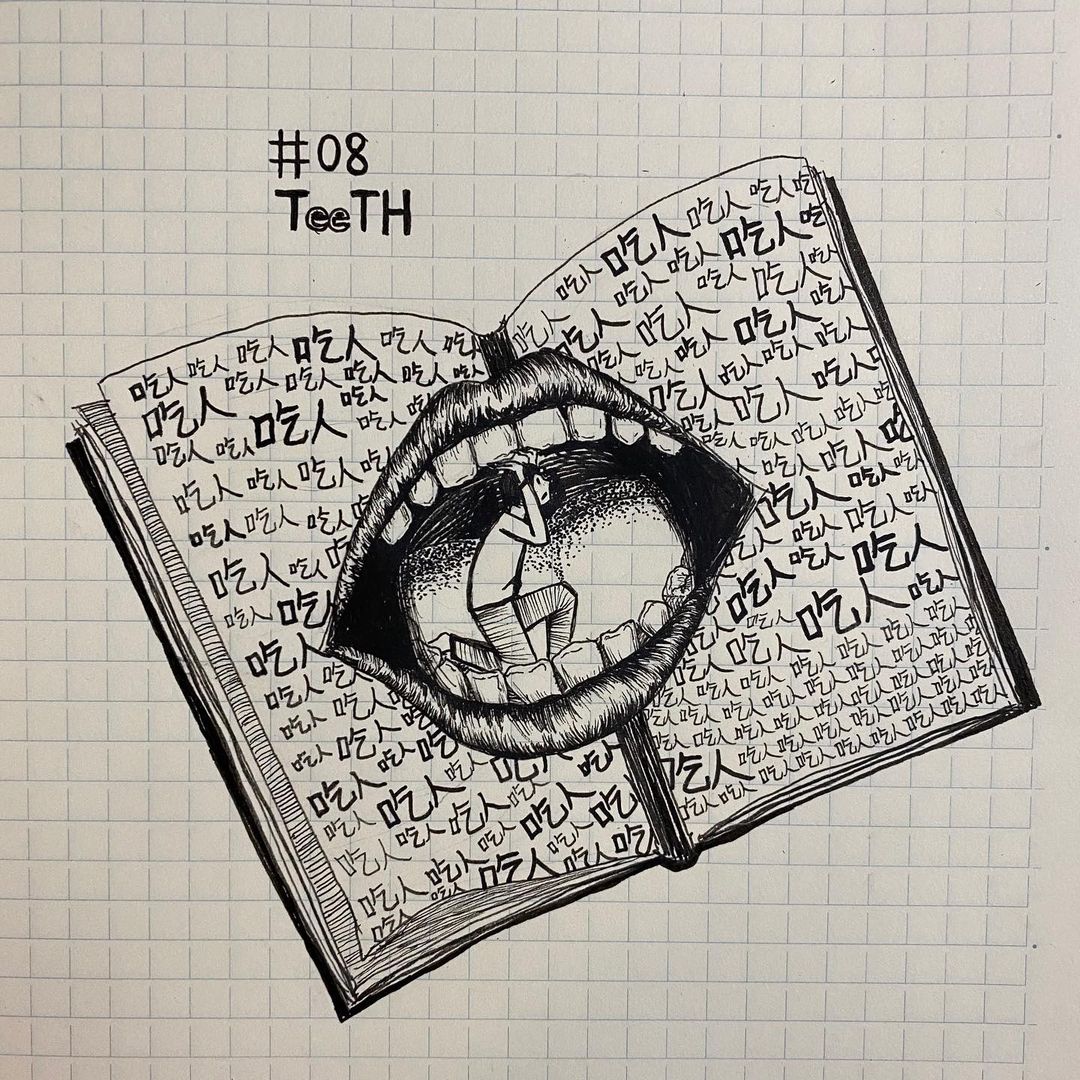 #08
TeeTH
吃人 吃人 吃人 吃人 吃人 吃人
吃人 吃人 吃人 吃人 吃人
吃人 吃人 吃人 吃人 吃人
吃人 吃人
吃人 吃人 吃人
吃人 吃人 吃人
吃人 吃人 吃人
吃人 吃
吃人
吃人 吃人
吃人 吃人
吃人 吃人 吃人
吃人 吃人 吃人 吃人
吃人 吃人 吃人 吃人
吃人 吃人 吃人 吃人
吃人 吃人 吃人 吃人 吃
吃人 吃人 吃人 吃人
吃人
吃人 吃人 吃人 吃人 吃
吃人 吃人 吃人 吃
吃人 吃人 吃人 吃人
吃人 吃人 吃人 吃人
吃人 吃人 吃人 吃人
吃人 吃人 吃人
吃人 吃人 吃人 吃人
吃人 吃人 吃人
吃人 吃人 吃人
吃人 吃人 吃人
吃人 吃人 吃人 吃人
吃人 吃人 吃人 吃人 吃人
吃人 吃人 吃人 吃人 吃人
吃人 吃人 吃人 吃人 吃人 吃人
吃人 吃人 吃人